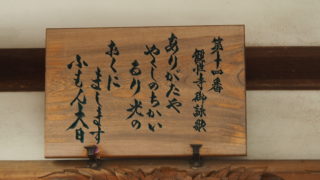 第十四番
観音寺御詠歌
ありがたや
やくしのちかい
もり火の
おくに
まします
ふもん大日